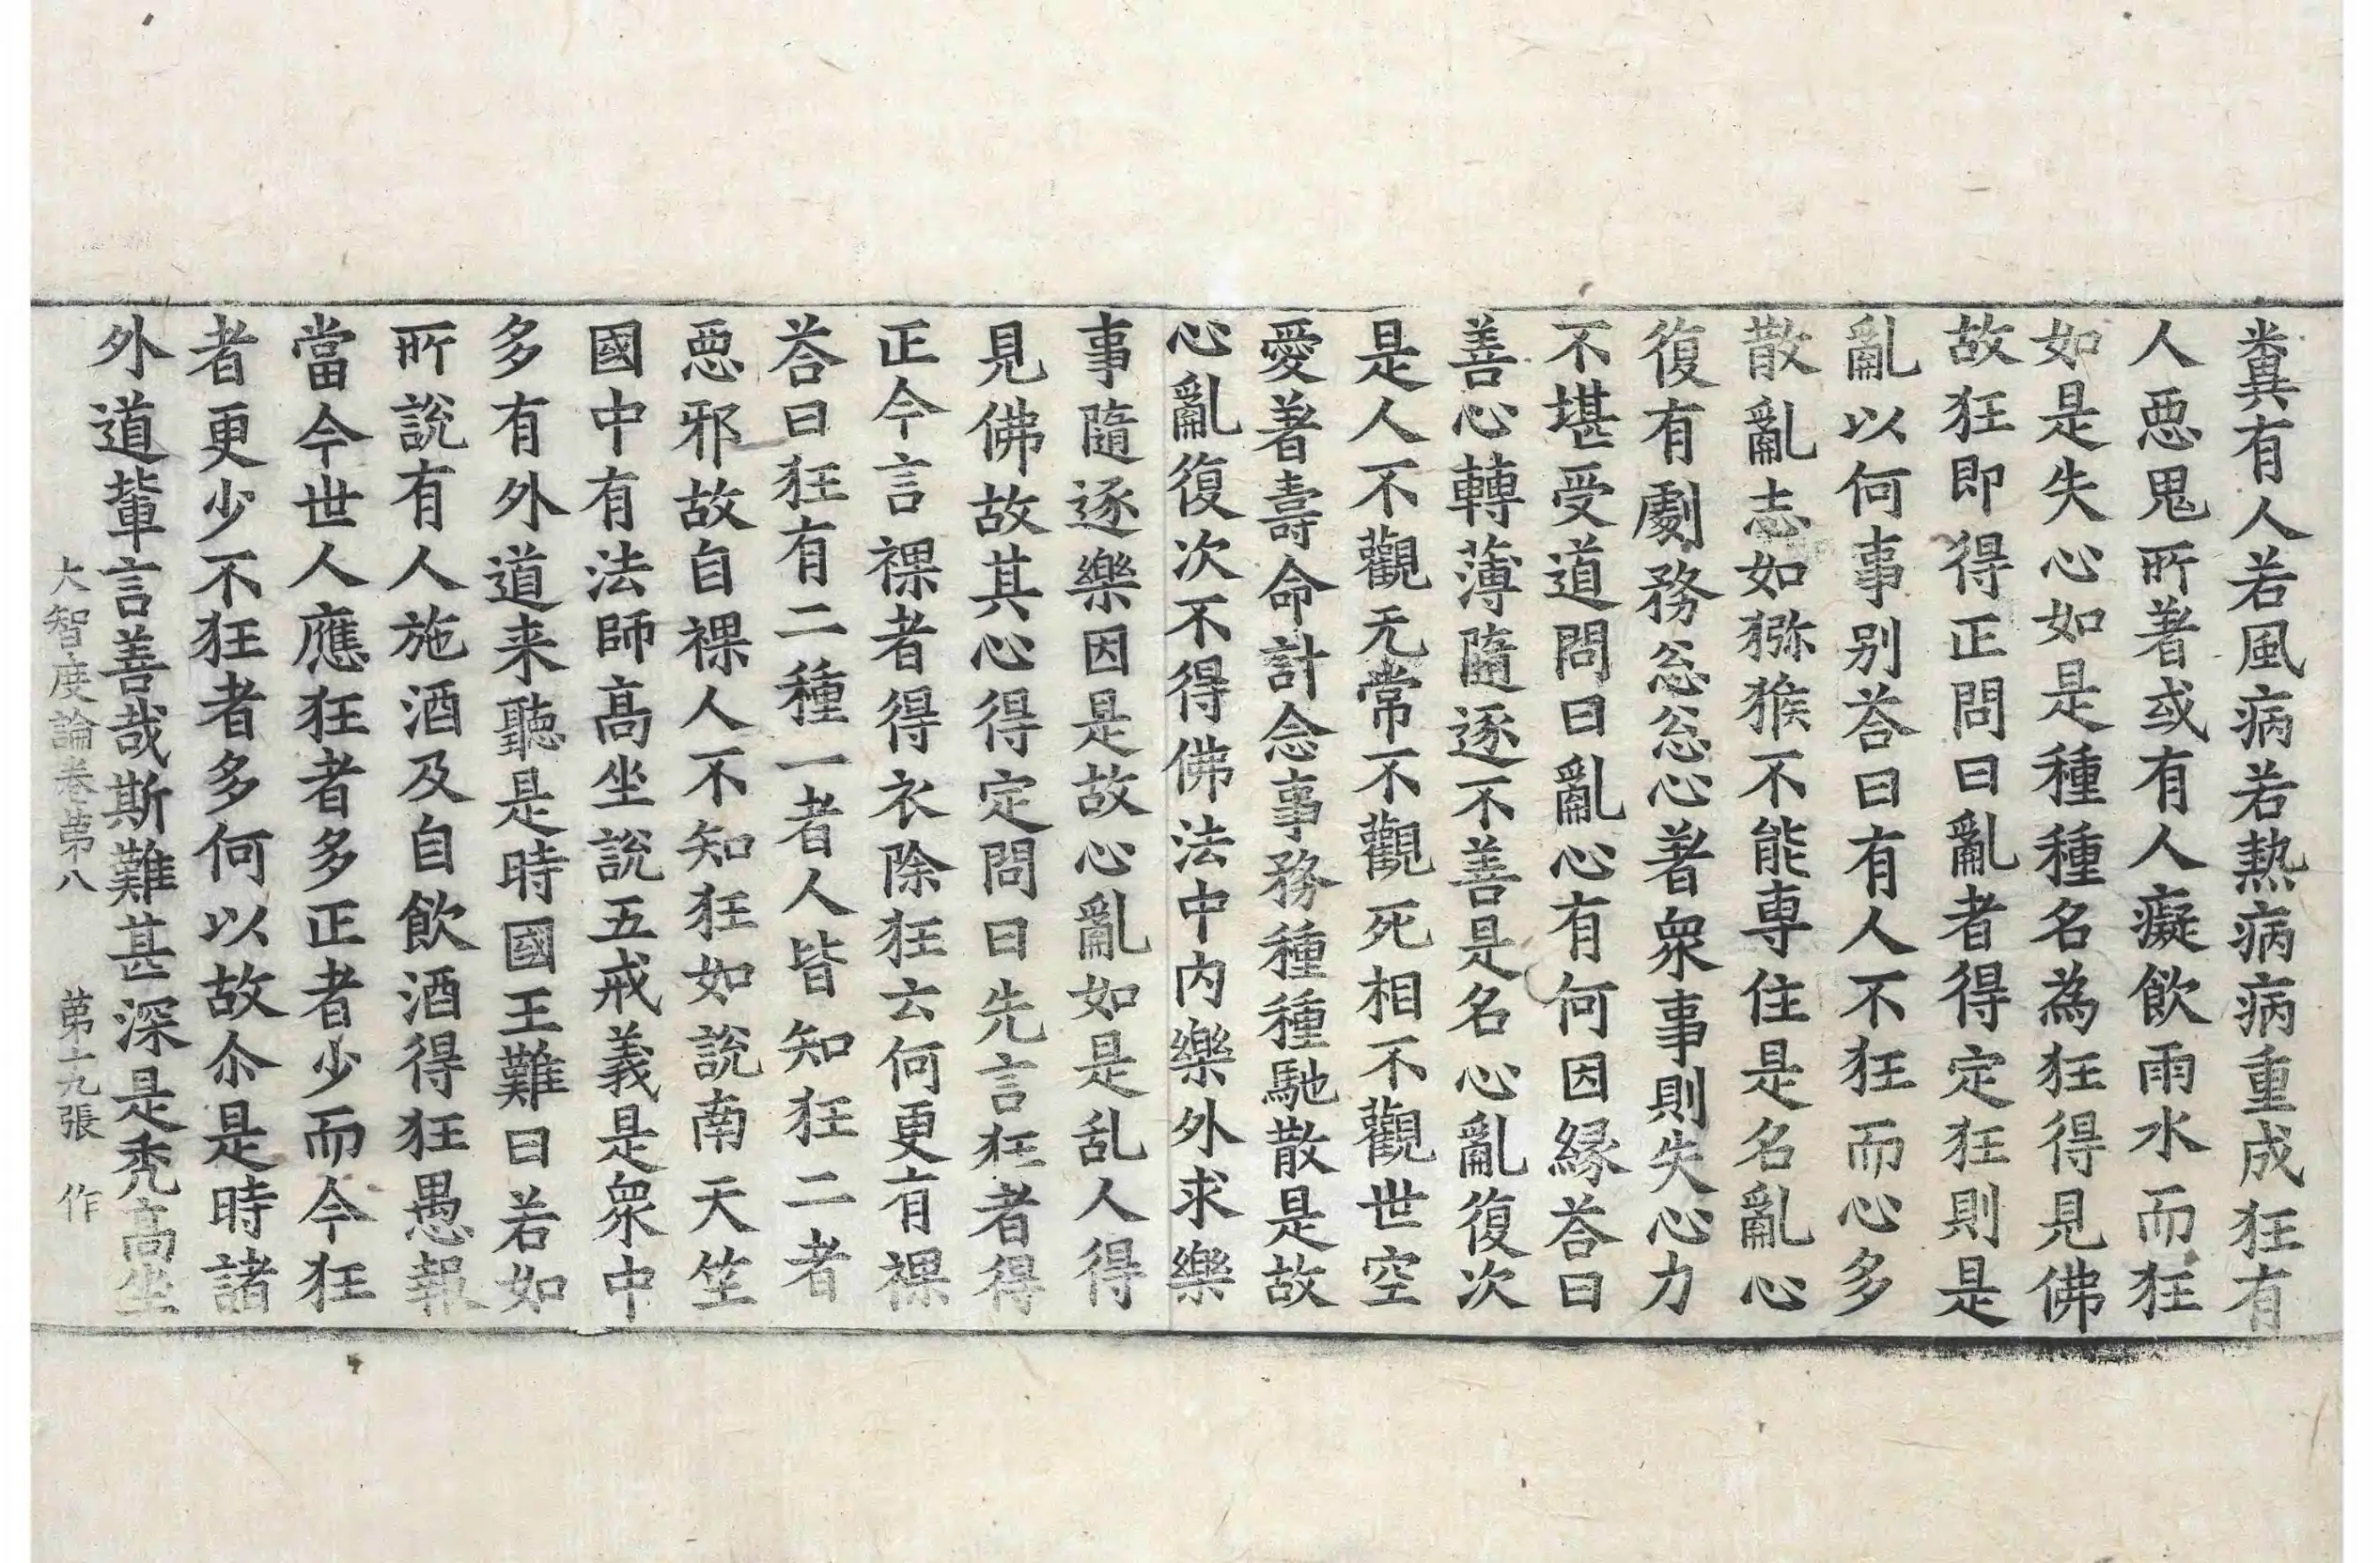 糞有人若風病若熱病病重成狂有
人惡鬼所著或有人癡飲雨水而狂
如是失心如是種種名為狂得見佛
故狂即得正問曰亂者得定狂則是
亂以何事別荅曰有人不狂而心多
散亂志如獼猴不能專住是名亂心
復有劇務忩忩心著衆事則失心力
不堪受道問曰亂心有何因縁荅曰
善心轉薄隨逐不善是名心亂復次
是人不觀无常不觀死相不觀世空
愛著壽命計念事務種種馳散是故
心亂復次不得佛法中内樂外求樂
事隨逐樂因是故心亂如是乱人得
見佛故其心得定問曰先言狂者得
正今言裸者得衣除狂云何更有裸
荅曰狂有二種一者人皆知狂二者
惡邪故自裸人不知狂如說南天竺
國中有法師高坐說五戒義是衆中
多有外道来聽是時國王難曰若如
所說有人施酒及自飲酒得狂愚報
當今世人應狂者多正者少而今狂
者更少不狂者多何以故尒是時諸
外道輩言善哉斯難甚深是禿高坐
大智度論卷第八 第十九張 作